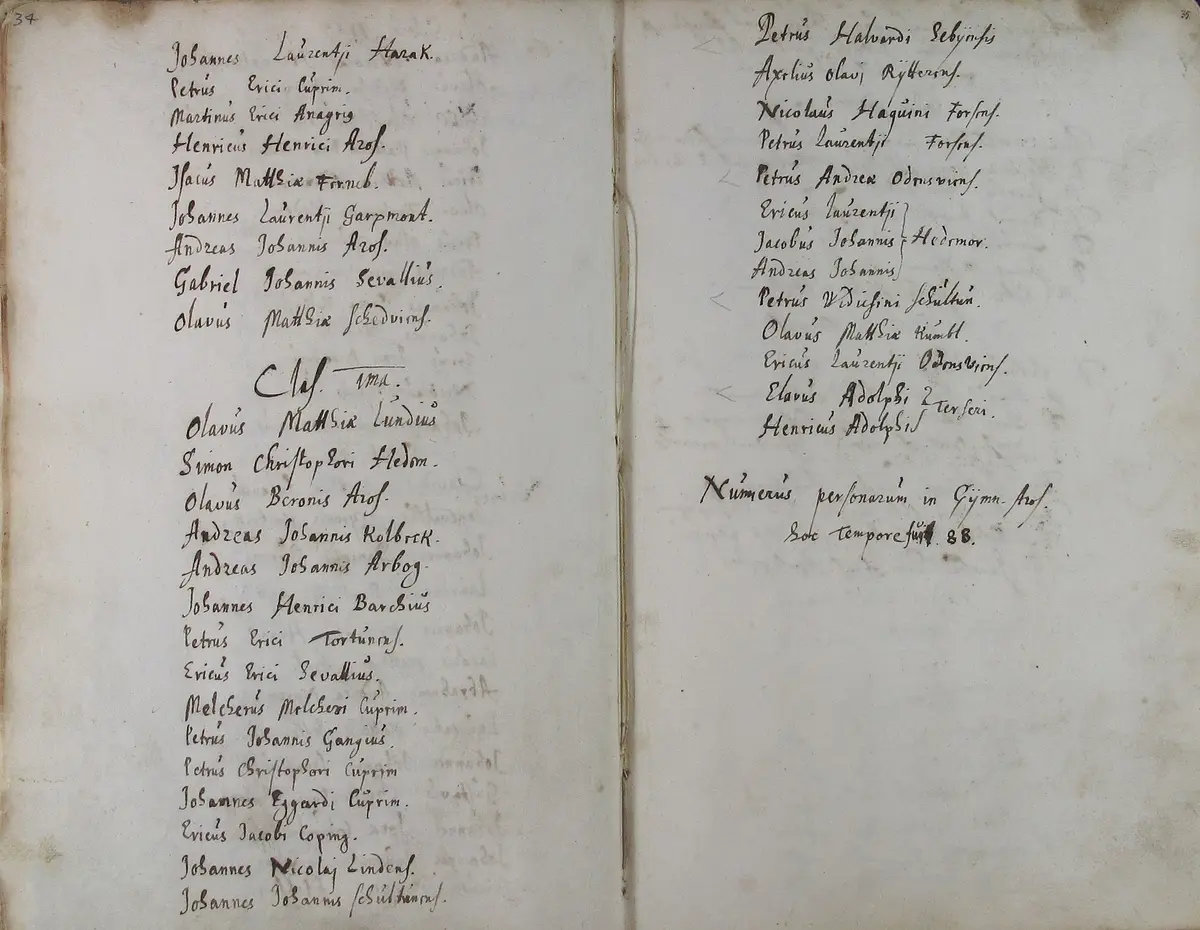 34
Johannes Laurentji Harak.
Petrus Erici Cuprim.
Martinus Erici Anagris
Henricus Henrici Aros.
Isacus Matthiæ Ferneb.
Johannes Laurentji Garpmont.
Andreas Johannis Aros.
Gabriel Johannis Sevallius.
Olavus Matthiæ Schedviens.
Clas. 1ma.
Olavus Matthiæ Lundius
Simon Christophori Hedom.
Olavus Beronis Aros.
Andreas Johannis Kolbeck.
Andreas Johannis Arbog.
Johannes Henrici Barchius
Petrus Erici Tortunens.
Ericus Erici Sevallius.
Melcherus Melcheri Cuprim.
Petrus Johannis Gangius.
Petrus Christophori Cuprim
Johannes Eggerdi Cuprim.
Ericus Jacobi Coping.
Johannes Nicolaj Lindens.
Johannes Johannis Schultunens.
35
Petrus Halvardi Sebyensis
Axelius Olavj Rytterens.
Nicolaus Haquini Forsens.
Petrus Laurentji Forsens.
Petrus Andreæ Odensviens.
Ericus Laurentji
Jacobus Johannis Hedemor.
Andreas Johannis
Petrus Schultun.
Olavus Matthiæ Kumbl.
Ericus Laurentji Odensviens.
Elavus Adolphi Terseri.
Henricus Adolphi
Numerus personarum in Gymn. Aros.
hoc Tempore fuit 88.